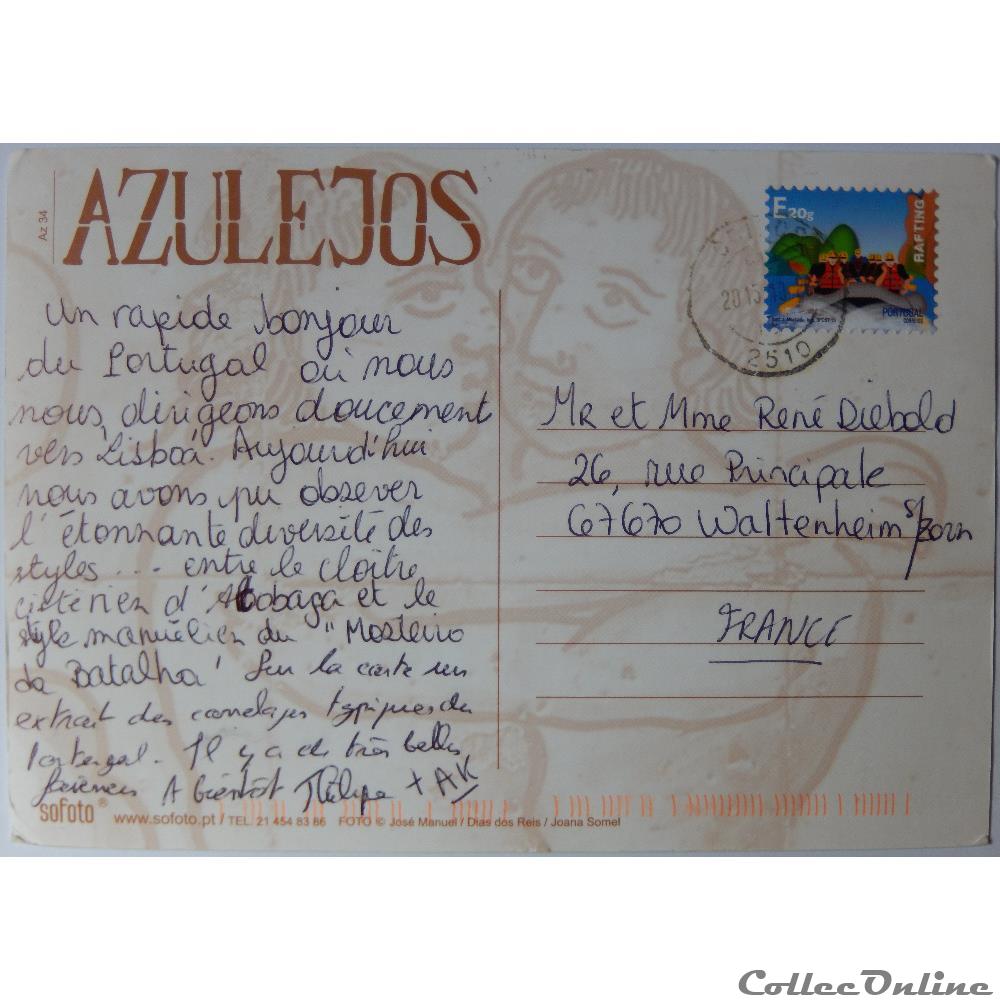 AZULEJOS
Az 34
Un rapide bonjour
du Portugal où nous
nous dirigeons doucement
vers Lisboa. Aujourd'hui
nous avons pu obsever
l'étonnante diversité des
styles... entre le cloître
cistérien d'Alcobaça et le
style manuélien du "Mosteiro
da Batalha" Sur la carte un
extrait des carrelages typiques du
Portugal. Il y a de très belles
faïences A bientôt Philippe + AK
E20g
RAFTING
PORTUGAL
2015
2510
Mr et Mme René Diebold
26, rue Principale
67670 Waltenheim s/Zorn
FRANCE
sofoto®
www.sofoto.pt / TEL. 21 454 83 86 FOTO © José Manuel / Dias dos Reis / Joana Somel
CollecOnline